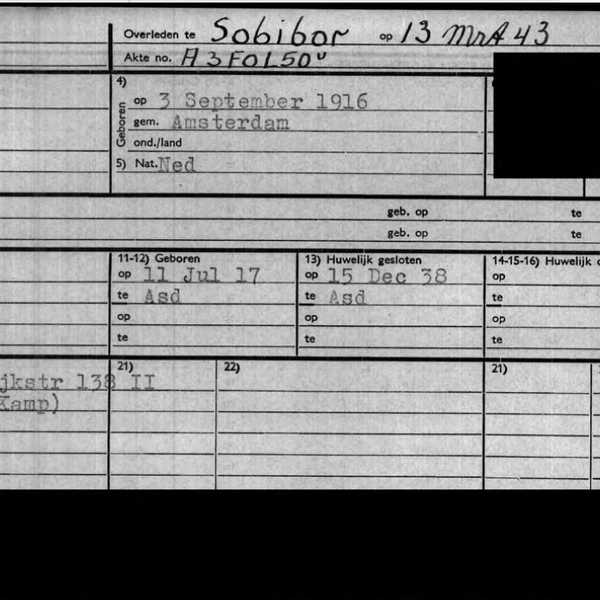 Overleden te Sobibor op 13 Mrt 43
Akte no. A3 Fol 50v
4)
Geboren
op 3 September 1916
gem. Amsterdam
ond./land
5) Nat. Ned
geb. op te
geb. op te
11-12) Geboren 13) Huwelijk gesloten 14-15-16) Huwelijk
op 11 Jul 17 op 15 Dec 38 op
te Asd te Asd te
op op op
te te te
21) 22) 21)
jkstr 138 II
Kamp)